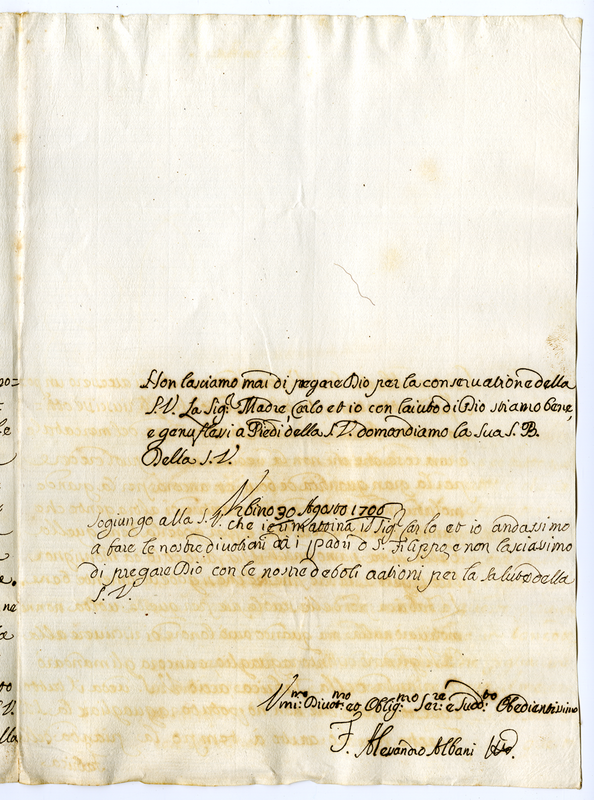 Non lasciamo mai di pregare Dio per la conservatione della
S.V. La Sig.ra Madre, Carlo et io con l'aiuto di Dio stiamo bene,
e genuflessi a Piedi della S.V. domandiamo la sua S. B.
Della S.V.
Urbino 30 Agosto 1706
Sogiungo alla S.V. che ieri mattina il Sig.r Carlo et io andassimo
a fare le nostre divotioni da i Padri di S. Filippo, e non lasciassimo
di pregare Dio con le nostre deboli orationi per la salute della
S.V.
Umi:mo Divot:mo et Oblig:mo Ser:re e Sudd:to Obedientissimo
F. Alesandro Albani